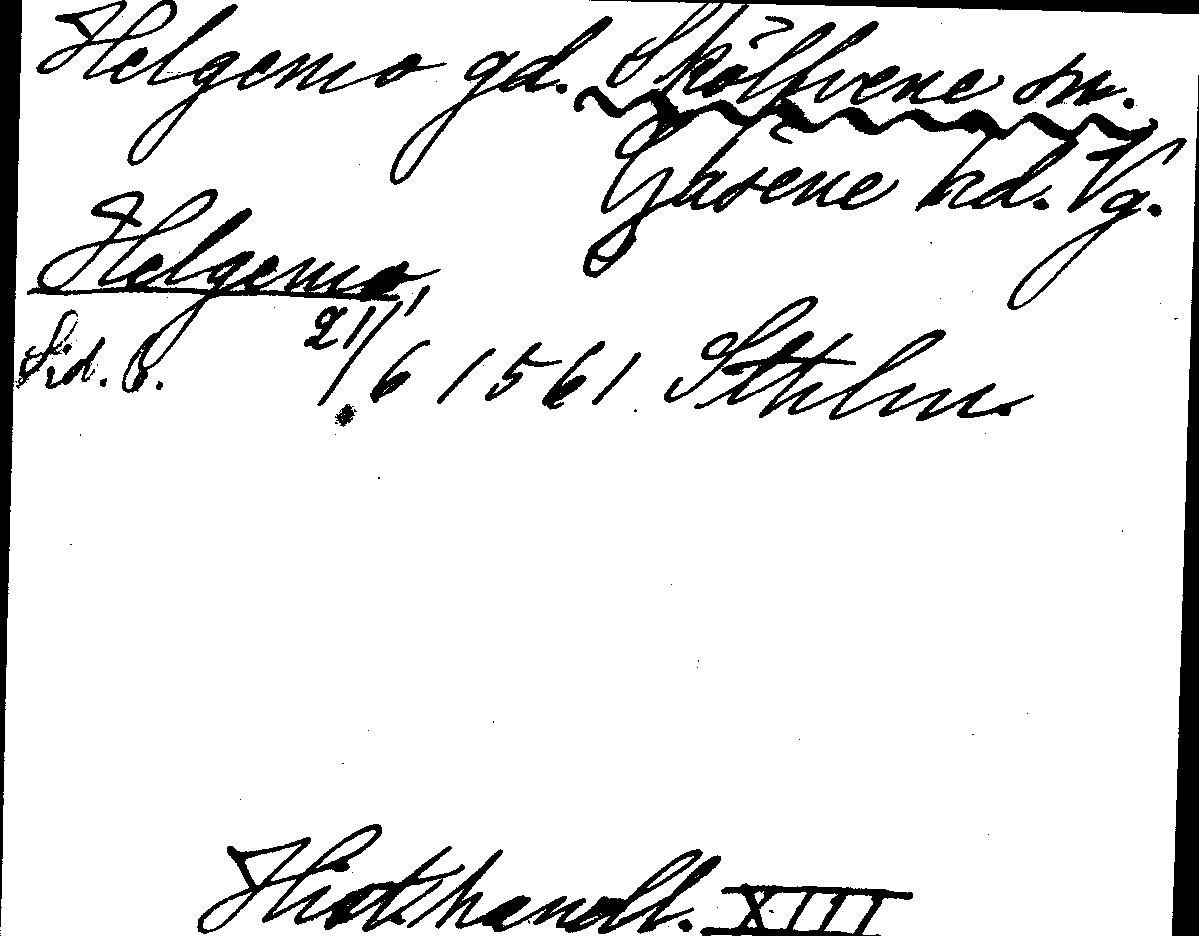 Helgemo gd. Skölfvene sn.
Gäsene hd. Vg.
Helgemo,
Sid. 6. 21/6 1561 Sthlm.
Hist. handl. XIII